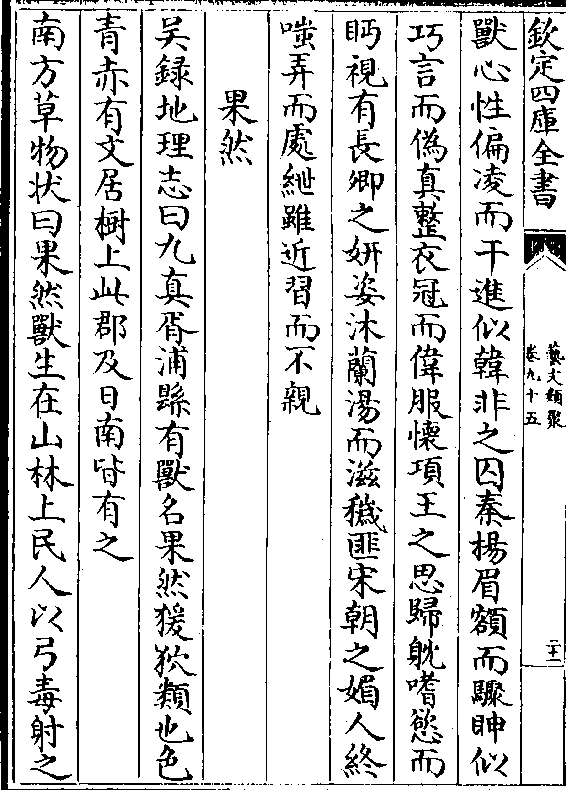 欽定四庫全書
藝文類聚
卷九十五
二十二
獸心性偏凌而干進似韓非之囚秦揚眉額而驟眒似
巧言而偽真整衣冠而偉服懷項王之思歸躭嗜慾而
眄視有長卿之妍姿沐蘭湯而滋穢匪宋朝之媚人終
嗤弄而處紲雖近習而不親
果然
吴録地理志曰九真胥浦縣有獸名果然猨狖類也色
青赤有文居樹上此郡及日南皆有之
南方草物状曰果然獸生在山林上民人以弓毒射之